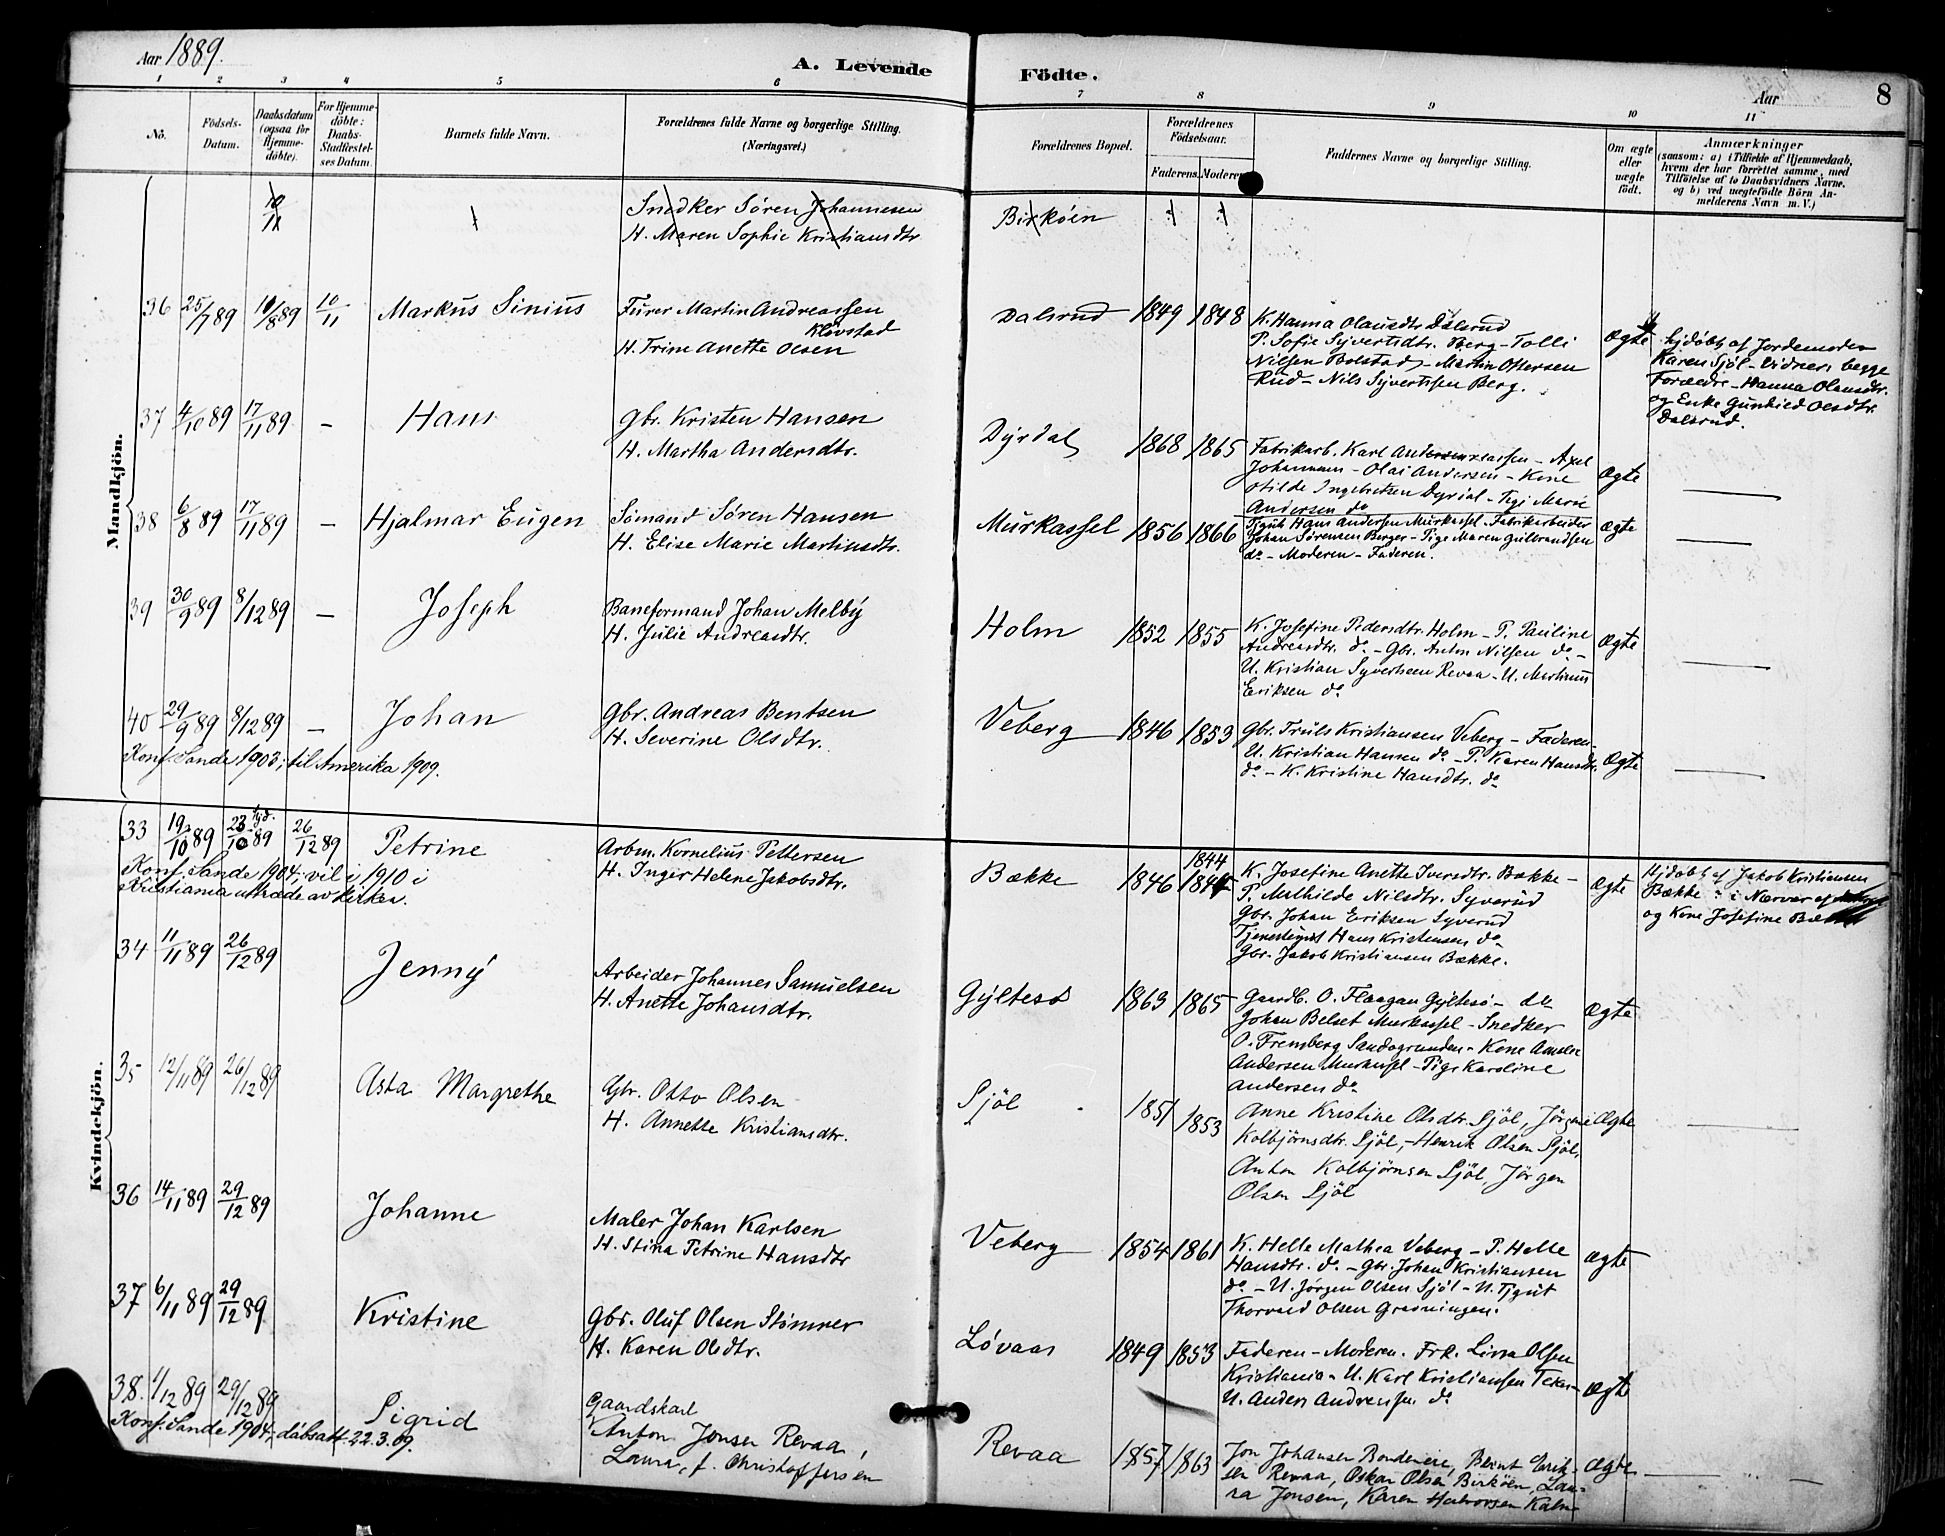 Aar 1889.
A. Levende Födte.
Aar
8
1 2 3 4 5 6 7 8 9 10 11
No.
Födsels-Datum.
Daabsdatum (ogsaa for Hjemme-döbte).
For Hjemme-döbte: Daabs-Stadfæstel-ses Datum.
Barnets fulde Navn.
Forældrenes fulde Navne og borgerlige Stilling.
(Næringsvei.)
Forældrenes Bopæl.
Forældrenes Födselsaar.
Faderens. Moderens.
Faddernes Navne og borgerlige Stilling.
Om ægte eller uægte födt.
Anmærkninger
(saasom: a) i Tilfælde af Hjemmedaab,
hvem der har forrettet samme, med
Tilföielse af to Daabsvidners Navne,
og b) ved uægtefödte Börn An-
melderens Navn m. V.)
Mandkjön.
10/11
Snedker Søren Johannesen
H. Maren Sophie Kristiansdtr.
Birkøen
36 25/7 89 10/8 89 10/11 Markus Sinius
Furer Martin Andreassen
Kløvstad
H. Trine Anette Olsen
Dalsrud 1849 1848
K. Hanna Olausdtr. Dalsrud
P. Sofie Syvertsdtr. Berg - Tolli
Nilsen Bolstad - Martin Ottersen
Rud - Nils Syvertsen Berg.
Ægte
hjdøbt af Jordemoder
Karen Sjøl - Vidner: begge
Forældre - Hanna Olausdtr.
og Enke Gunhild Olsdtr.
Dalsrud.
37 4/10 89 17/11 89 - Hans
Gbr. Kristen Hansen
H. Martha Andersdtr.
Dyrdal 1868 1865
Fabrikarb. Karl Andreassen - Axel
Johannesen - Olai Andersen - Kone
Otilde Ingebretsen Dyrdal - Pige Marie
Andersen do
Ægte
38 6/8 89 17/11 89 - Hjalmar Eugen
Sømand Søren Hansen
H. Elise Marie Martinsdtr.
Murkassel 1856 1866
Tjgut Hans Andersen Murkassel - Fabrikarbeider
Johan Sørensen Berger - Pige Maren Gulbrandsen
do - Moderen - Faderen.
Ægte
39 30/9 89 8/12 89 - Joseph
Baneformand Johan Melby
H. Julie Andreasdtr.
Holm 1852 1855
K. Josefine Pedersdtr. Holm - P. Pauline
Andreasdtr. do - Gbr. Anton Nilsen do -
U. Kristian Syvertsen Revaa - U. Martinius
Eriksen do
Ægte
40 29/9 89 8/12 89 - Johan
Gbr. Andreas Bentsen
H. Severine Olsdtr.
Konf. Sande 1903; til Amerika 1909.
Veberg 1846 1853
Gbr. Truls Kristiansen Veberg - Faderen -
U. Kristian Hansen do - P. Karen Hansdtr.
do - K. Kristine Hansdtr. do
Ægte
Kvindekjön.
33 19/10 89 23/10 89 hjd. 26/12 89 Petrine
Arbm. Kornelius Pettersen
H. Inger Helene Jakobsdtr.
Konf. Sande 1904; vil i 1910 i
Kristiania utræde av kirken.
Bække 1846 1844
K. Josefine Anette Iversdtr. Bække -
P. Mathilde Nilsdtr. Syverud
Gbr. Johan Eriksen Syverud
Tjenestegut Hans Kristensen do
Gbr. Jakob Kristiansen Bække.
Ægte
Hjdøbt af Jakob Kristiansen
Bække i Nærvær af
og Kone Josefine
34 11/11 89 26/12 89 Jenny
Arbeider Johannes Samuelsen
H. Anette Johansdtr.
Gyltesø 1863 1865
Gaardb. O. Flaagan Gyltesø - do
Johan Belset Murkassel - Snedker
O. Fremberg Sandegrunden - Kone
Andersen Murkassel - Pige Karoline
Andersen do
Ægte
35 12/11 89 26/12 89 Asta Margrethe
Gbr. Otto Olsen
H. Annette Kristiansdtr.
Sjöl 1851 1853
Anne Kristine Olsdtr. Sjöl, Jörgine
Kolbjörnsdtr. Sjöl, - Henrik Olsen Sjöl,
Anton Kolbjörnsen Sjöl, Jörgen
Olsen Sjöl
Ægte
36 14/11 89 29/12 89 Johanne
Maler Johan Karlsen
H. Stina Petrine Hansdtr
Veberg 1854 1861
K. Helle Mathea Veberg - P. Helle
Hansdtr. do - Gbr. Johan Kristiansen
do - U. Jørgen Olsen Sjöl - U. Tjgut
Thorvald Olsen Grønningen.
Ægte
37 6/11 89 29/12 89 Kristine
Gbr. Oluf Olsen Stømner
H. Karen Olsdtr.
Løvaas 1849 1853
Faderen - Moderen. Frk. Lina Olsen
Kristiania - U. Karl Kristiansen
U. Anders Andreassen do
Ægte
38. 1/12 89 29/12 89 Sigrid
Gaardskarl
Anton Jonsen Revaa,
Laura, f. Christoffersen
Konf. Sande 1904; dåbsatt. 22.3.09.
Revaa 1857 1863
Jon Johansen Bondeneie, Bernt Erik-
sen Revaa, Oskar Olsen Birköen, Lau-
ra Jonsen, Karen Halvorsen
Ægte